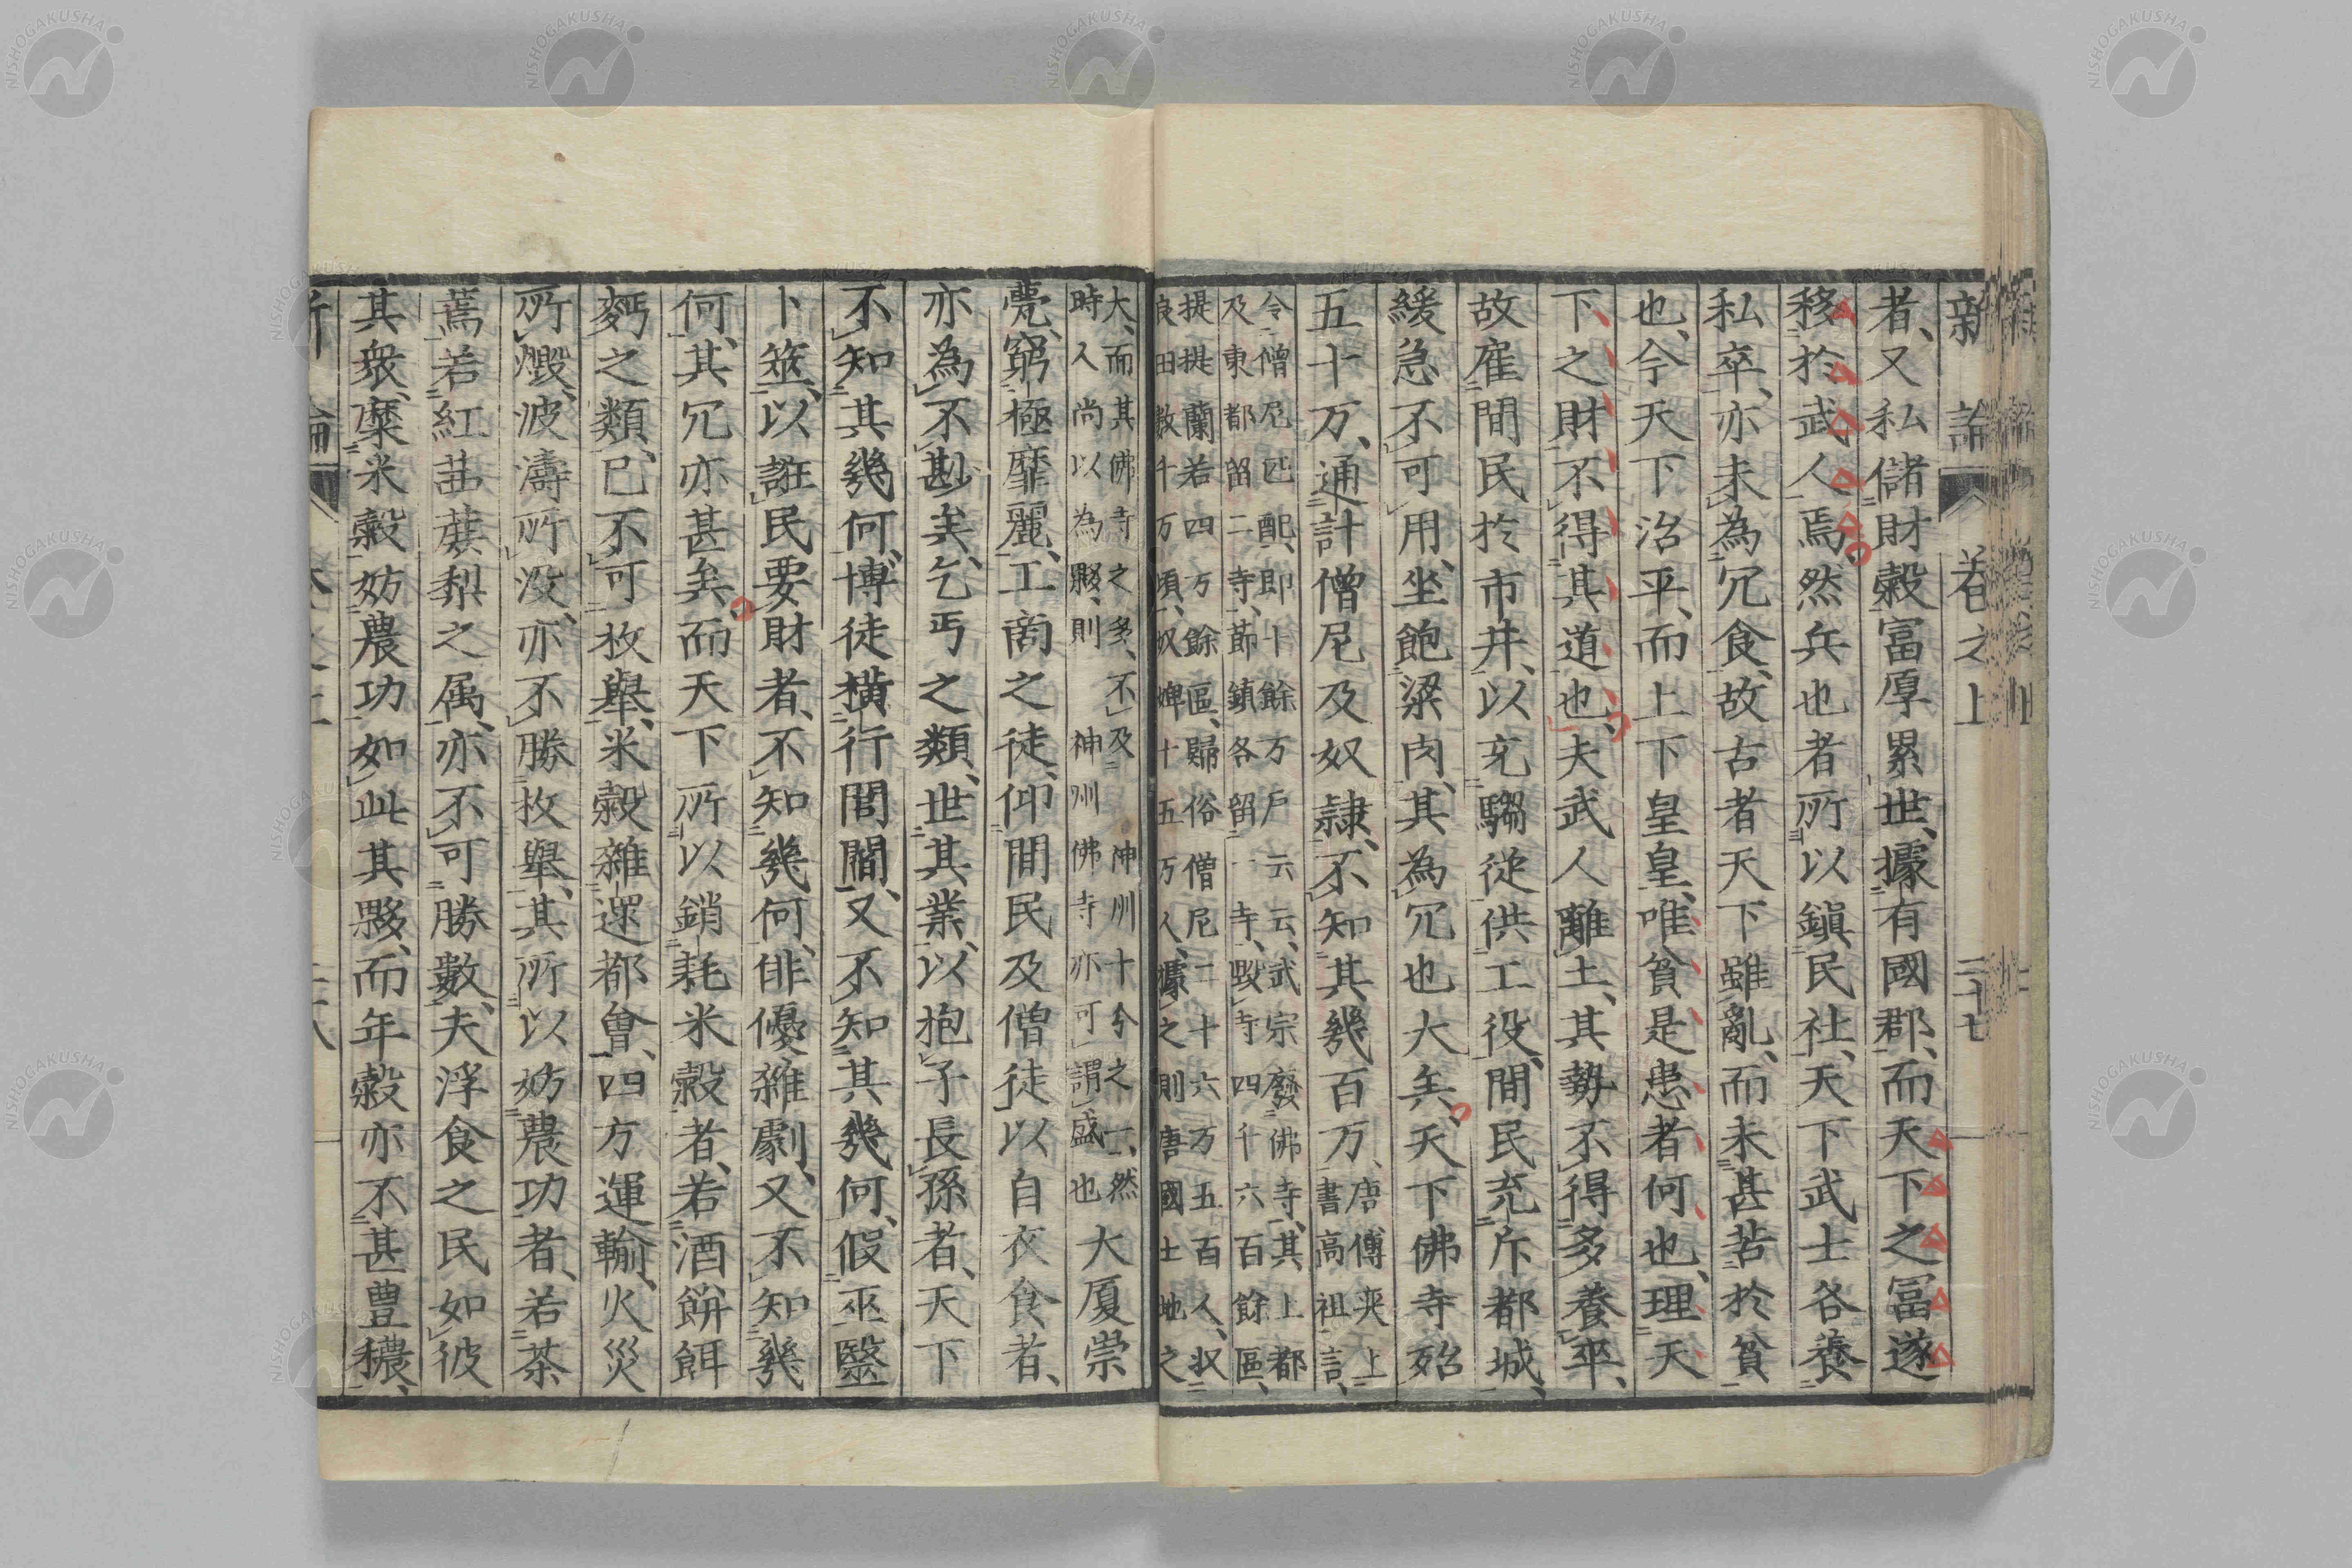 新論 卷之上 二十七
者、又私儲財穀冨厚累世、據有國郡、而天下之冨遂
移於武人焉、然兵也者所以鎭民社、天下武士各養
私卒、亦未為冗食、故古者天下雖亂、而未甚苦於貧
也、今天下治平、而上下皇皇、唯貧是患者何也、理天
下之財不得其道也、夫武人離土、其勢不得多養卒、
故雇間民於市井、以充騶從供工役、間民充斥都城、
緩急不可用、坐飽粱肉、其為冗也大矣、天下佛寺殆
五十万、通計僧尼及奴隷、不知其幾百万、唐傅奕上
書高祖言、
令僧尼匹配、即十餘万戶云云、武宗廢佛寺、其上都
及東都留二寺、節鎮各留一寺、毀寺四千六百餘區、
提提蘭若四万餘區、歸俗僧尼二十六万五百人、収
良田數千万頃、奴婢十五万人、據之則唐國土地之
大、而其佛寺之多、不及神州十分之一、然
時人尚以為夥、則神州佛寺亦可謂盛也
大厦崇
甍、窮極靡麗、工商之徒、仰間民及僧徒以自衣食者、
亦為不尠矣、乞丐之類、世其業、以抱子長孫者、天下
不知其幾何、博徒橫行閭閻、又不知其幾何、假巫醫
卜筮、以誑民要財者、不知幾何、俳優雜劇、又不知幾
何、其冗亦甚矣、而天下所以銷耗米穀者、若酒餅餌
麪之類、已不可枚舉、米穀雜遝都會、四方運輸、火災
所燬、波濤所没、亦不勝枚舉、其所以妨農功者、若茶
蔫若紅茜蔗梨之属、亦不可勝數、夫浮食之民如彼
其衆、糜米穀妨農功如此其夥、而年穀亦不甚豊穰、